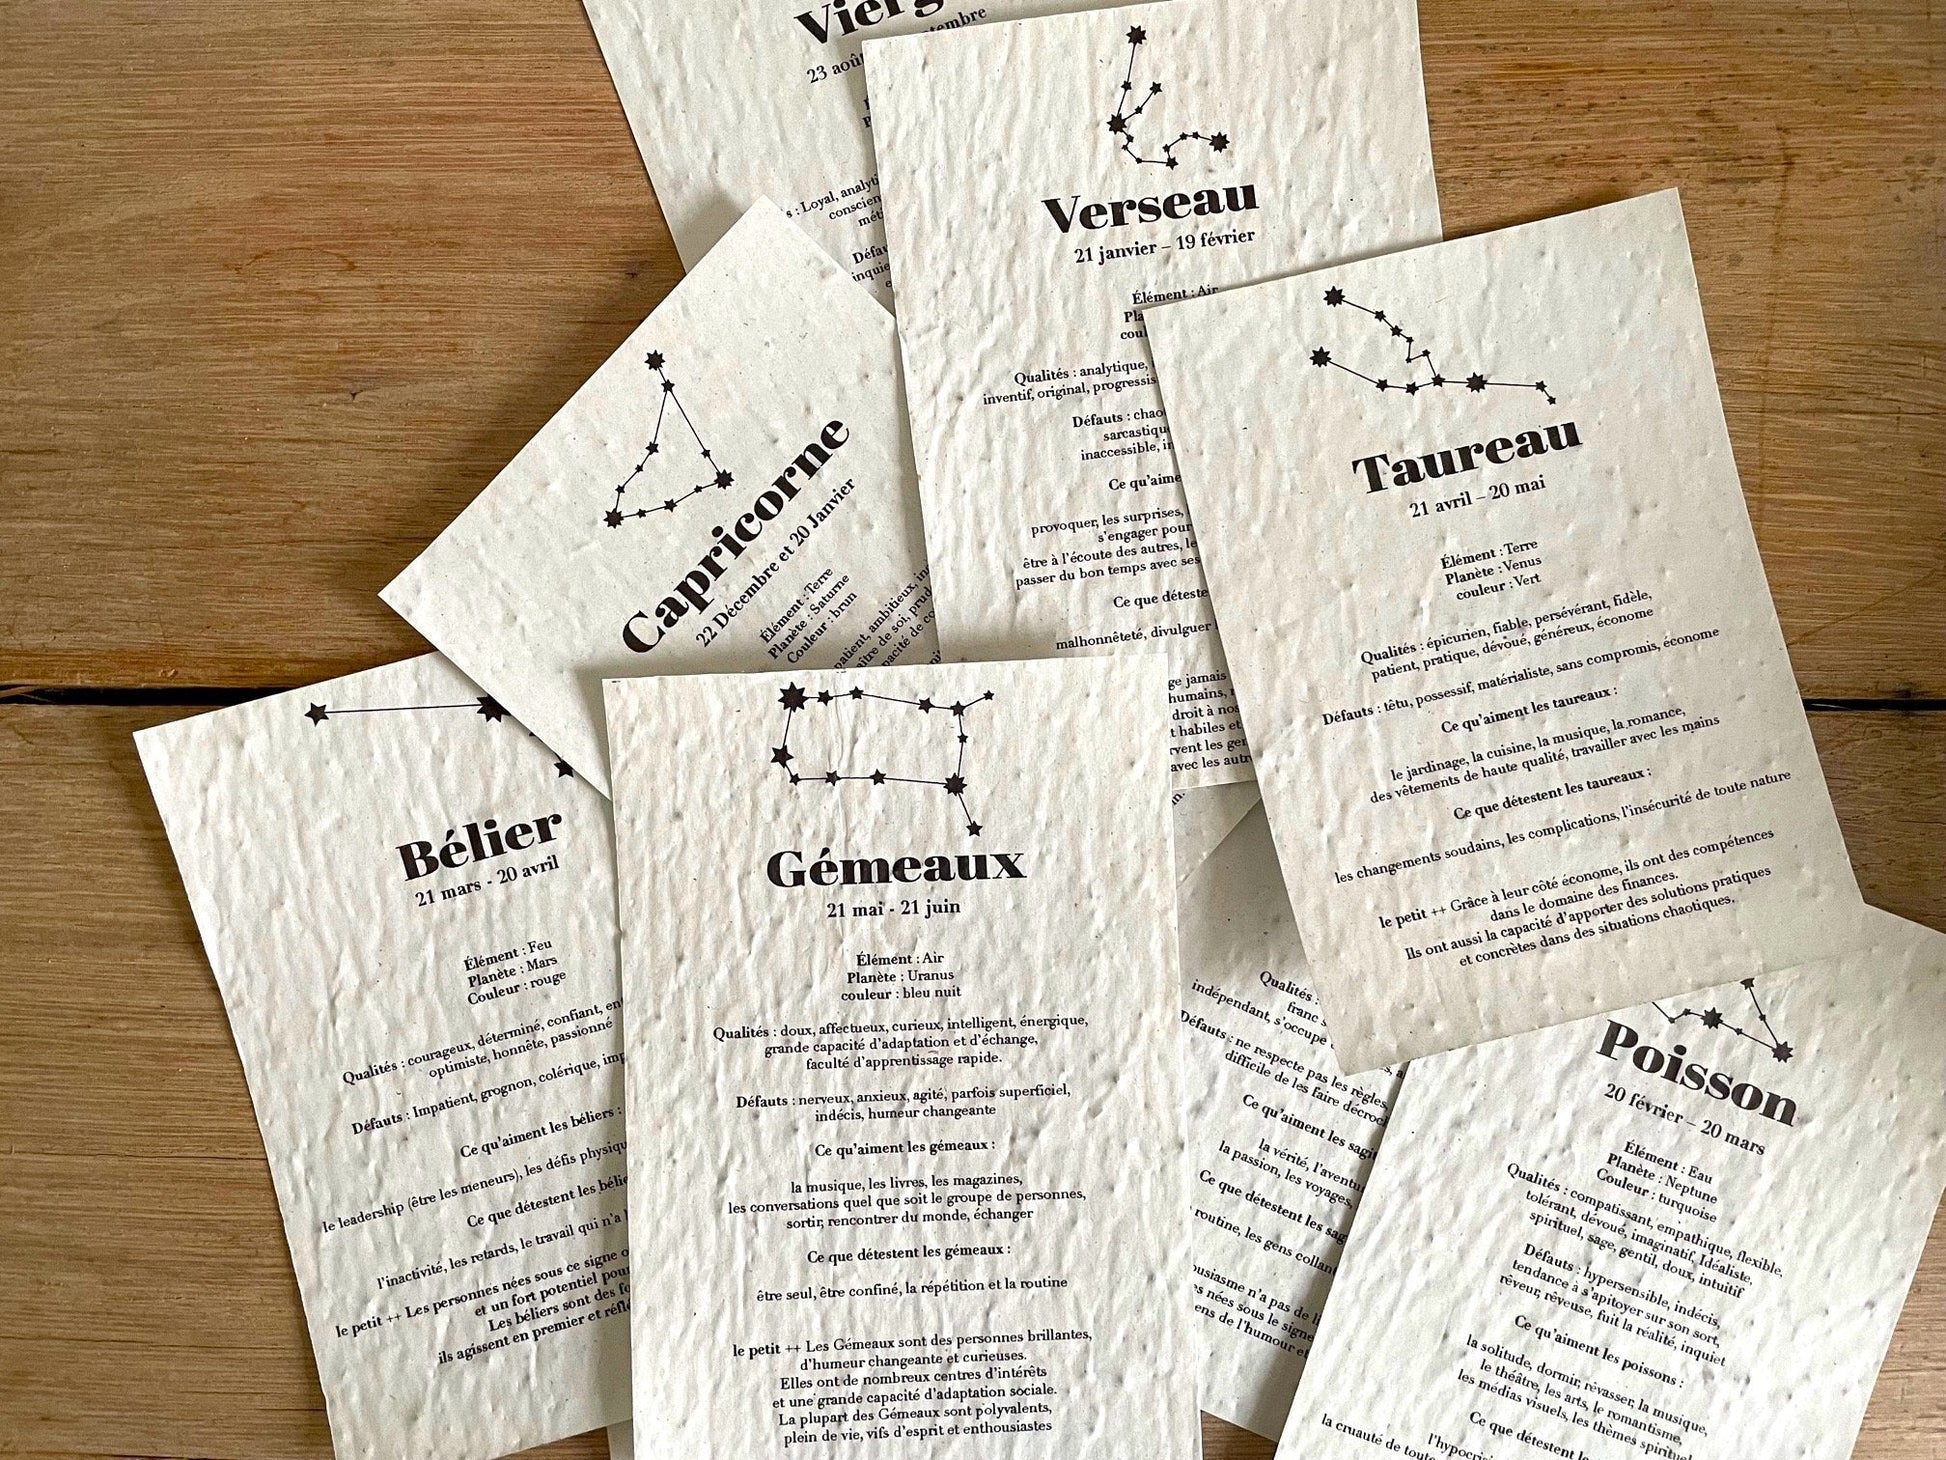 Vierg
23 août
tembre
s : Loyal, analyti
conscien
mét
Défau
inquie
Verseau
21 janvier – 19 février
Élément : Air
Pla
coul
Qualités : analytique,
inventif, original, progressis
Défauts : chao
sarcastique
inaccessible, in
Ce qu'aime
provoquer, les surprises,
s'engager pour
être à l'écoute des autres, le
passer du bon temps avec ses
Ce que déteste
malhonnêteté, divulguer
ge jamais
humains,
droit à nos
t habiles et
rvent les gen
avec les autr
Taureau
21 avril – 20 mai
Élément : Terre
Planète : Venus
couleur : Vert
Qualités : épicurien, fiable, persévérant, fidèle,
patient, pratique, dévoué, généreux, économe
Défauts : têtu, possessif, matérialiste, sans compromis, économe
Ce qu'aiment les taureaux :
le jardinage, la cuisine, la musique, la romance,
des vêtements de haute qualité, travailler avec les mains
Ce que détestent les taureaux :
les changements soudains, les complications, l'insécurité de toute nature
le petit ++ Grâce à leur côté économe, ils ont des compétences
dans le domaine des finances.
Ils ont aussi la capacité d'apporter des solutions pratiques
et concrètes dans des situations chaotiques.
Capricorne
22 Décembre et 20 Janvier
Élément : Terre
Planète : Saturne
Couleur : brun
patient, ambitieux, in
aître de soi, prud
capacité de co
Bélier
21 mars - 20 avril
Élément : Feu
Planète : Mars
Couleur : rouge
Qualités : courageux, déterminé, confiant, en
optimiste, honnête, passionné
Défauts : Impatient, grognon, colérique, imp
Ce qu'aiment les béliers :
le leadership (être les meneurs), les défis physiqu
Ce que détestent les bélie
l'inactivité, les retards, le travail qui n'a
le petit ++ Les personnes nées sous ce signe o
et un fort potentiel pour
Les béliers sont des fo
ils agissent en premier et réflé
Gémeaux
21 mai - 21 juin
Élément : Air
Planète : Uranus
couleur : bleu nuit
Qualités : doux, affectueux, curieux, intelligent, énergique,
grande capacité d'adaptation et d'échange,
faculté d'apprentissage rapide.
Défauts : nerveux, anxieux, agité, parfois superficiel,
indécis, humeur changeante
Ce qu'aiment les gémeaux :
la musique, les livres, les magazines,
les conversations quel que soit le groupe de personnes,
sortir, rencontrer du monde, échanger
Ce que détestent les gémeaux :
être seul, être confiné, la répétition et la routine
le petit ++ Les Gémeaux sont des personnes brillantes,
d'humeur changeante et curieuses.
Elles ont de nombreux centres d'intérêts
et une grande capacité d'adaptation sociale.
La plupart des Gémeaux sont polyvalents,
plein de vie, vifs d'esprit et enthousiastes
Qualités :
franc
indépendant, s'occupe
Défauts : ne respecte pas les règles,
difficile de les faire décroc
Ce qu'aiment les sagit
la vérité, l'aventu
la passion, les voyages,
Ce que détestent les sag
routine, les gens collant
ousiasme n'a pas de li
s nées sous le signe
ens de l'humour et
Poisson
20 février – 20 mars
Élément : Eau
Planète : Neptune
Couleur : turquoise
Qualités : compatissant, empathique, flexible,
tolérant, dévoué, imaginatif, Idéaliste,
spirituel, sage, gentil, doux, intuitif
Défauts : hypersensible, indécis,
tendance à s'apitoyer sur son sort,
rêveur, rêveuse, fuit la réalité, inquiet
Ce qu'aiment les poissons :
la solitude, dormir, rêvasser, la musique,
le théâtre, les arts, le romantisme,
les médias visuels, les thèmes spirituel
Ce que détestent le
l'hypocri
la cruauté de toute